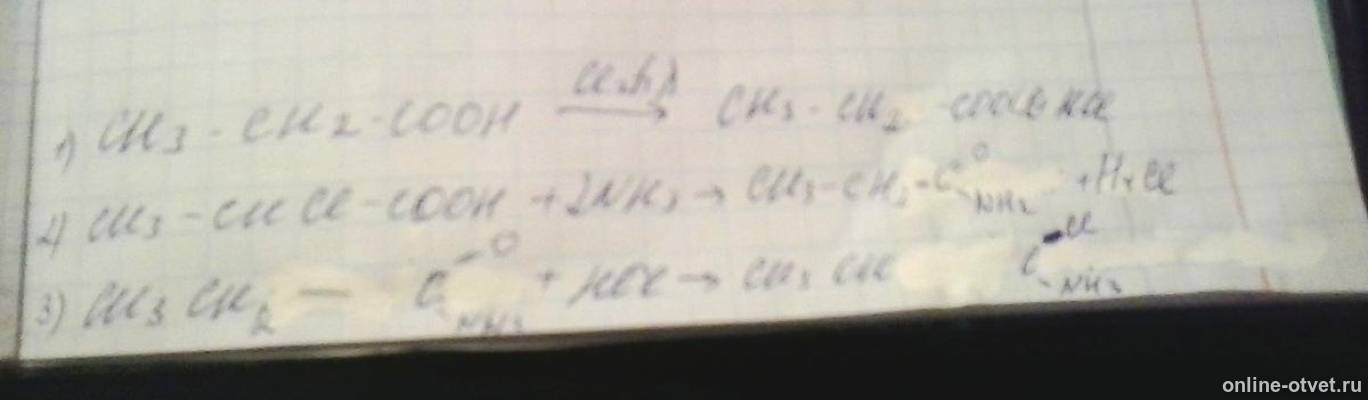 1) CH3 - CH2 - COOH → CH3 - CH2
2) CH3 - CHCl - COOH + 2NH3 → CH3 - CH2 - C O NH2 +
3) CH3 CH2 — C O NH2 + HCl → CH3 CH C Cl NH3
online-otvet.ru